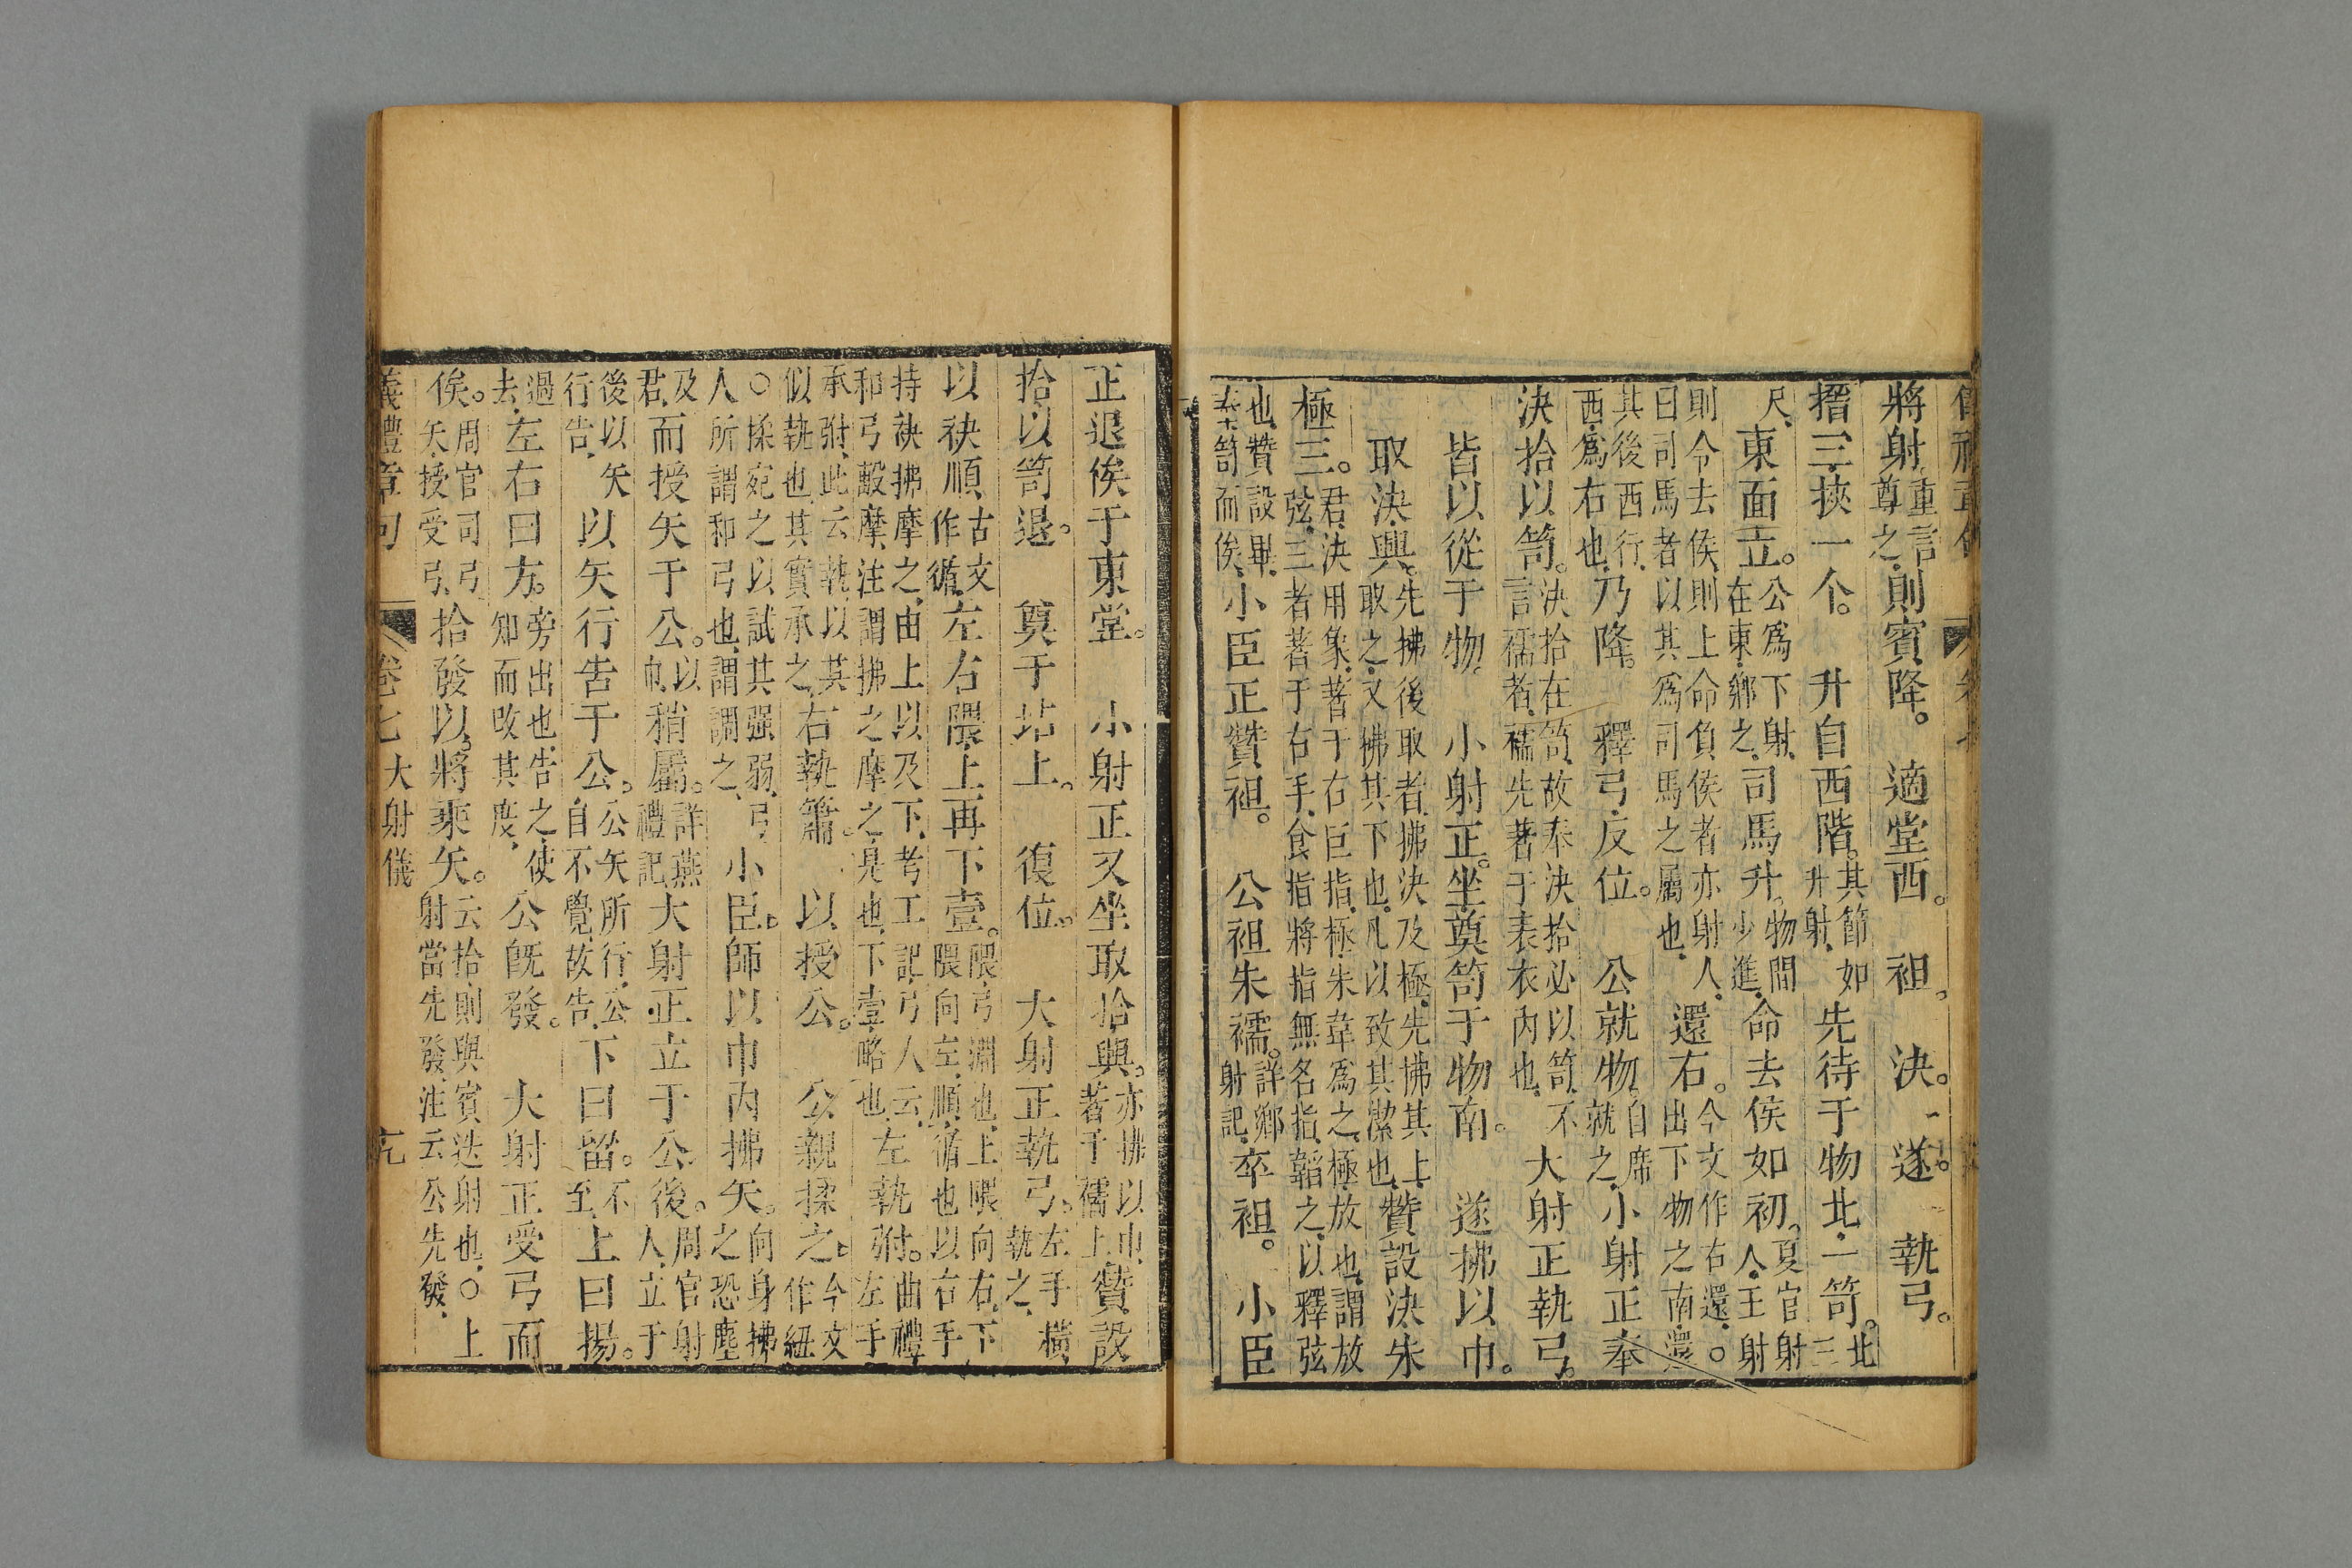 將射重言尊之則賓降。適堂西。袒。決、遂。執弓。
搢三挾一个。升自西階。其節如升射先待于物北一笴。北三
尺東面立。公爲下射在東鄉之司馬升。物間少進命去侯如初。夏官射人王射
則令去侯則上命負侯者亦射人曰司馬者以其爲司馬之屬也還右。今文作右還○出下物之南還
其後西行西爲右也乃降。釋弓反位。公就物。自席就之小射正奉
決拾以笴。決拾在笴故奉決拾必以笴不言襦者襦先著于表衣內也大射正執弓。
皆以從于物。小射正。坐奠笴于物南。遂拂以巾。
取決興。先拂後取者拂決及極先拂其上取之又拂其下也凡以致其潔也贊設決朱
極三。君決用象著于右巨指極朱韋爲之極放也謂放弦三者著于右手食指將指無名指韜之以釋弦
也贊設畢奉笴而俟小臣正贊袒。公袒朱襦。詳鄉射記卒袒。小臣
正退俟于東堂。小射正又坐取拾興。亦拂以巾著于襦上贊設
拾以笴退。奠于坫上。復位。大射正執弓。左手橫執之
以袂順古文作循左右隈上再下壹。隈弓淵也上隈向右下隈向左順循也以右手
持袂拂摩之由上以及下考工記弓人云和弓㲉摩注謂拂之摩之是也下壹略也左執弣。曲禮左手
承弣此云執以其似執也其實承之右執簫。以授公。公親揉之。今文作紐
○揉宛之以試其强弱弓人所謂和弓也謂調之小臣。師以巾內拂矢。向身拂之恐塵
及君而授矢于公。以巾稍屬。詳燕禮記大射正立于公後。周官射人立于
後以矢行告以矢行告于公。公矢所行公自不覺故告下曰留。不至上曰揚。
過去左右曰方。旁出也告之使知而改其度公既發。大射正受弓而
俟。周官司弓矢授受弓拾發以將乘矢。云拾則與賓迭射也○上射當先發注云公先發
儀禮章句 卷七大射儀